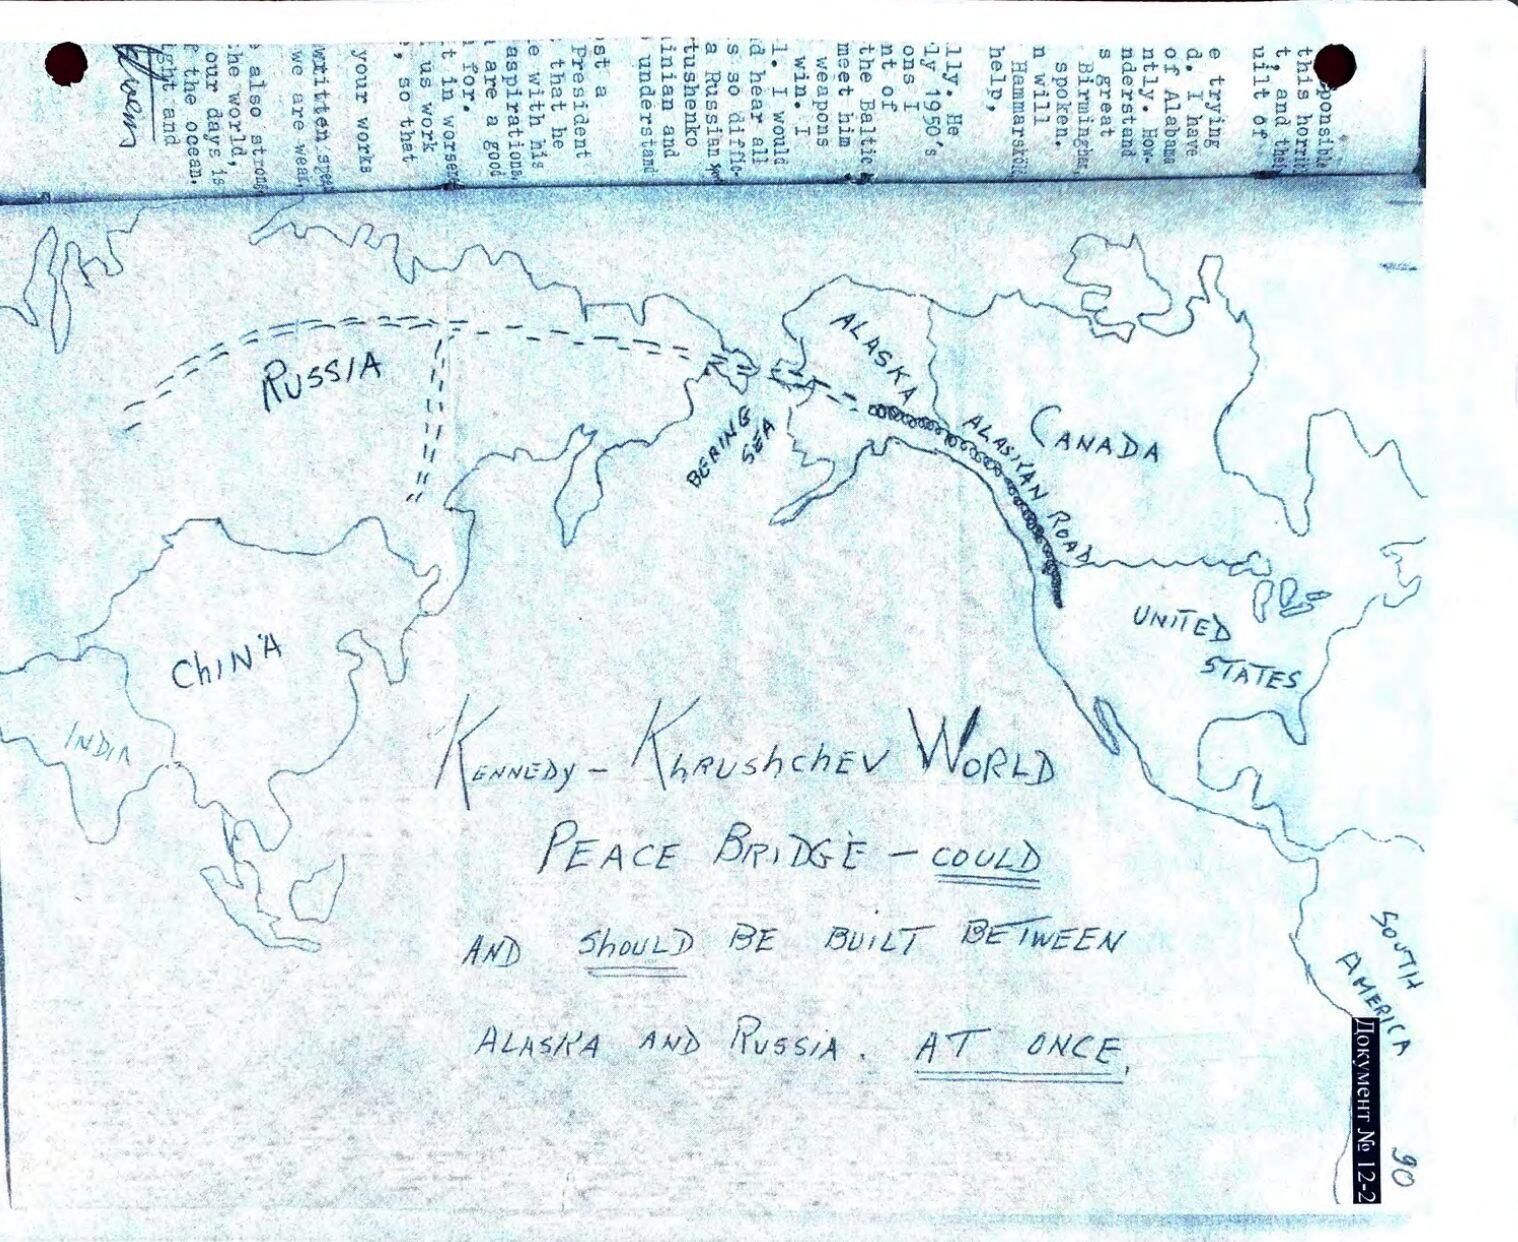 ponsible
this horrib
t, and thei
uilt of
e trying
d. I have
of Alabama
ntly. How-
nderstand
s great
Birmingham,
spoken.
n will
Hammarskjöl
help,
lly. He
ly 1950's
ons I
nt of
the Baltic
meet him
weapons
win. I
l. I would
d hear all
s so diffic-
a Russian
tushenko
inian and
understand
st a
President
that he
e with his
aspirations,
are a good
for.
t in worsen
us work
, so that
your works
written spee
we are wear
also strong
he world,
our days is
the ocean.
ght and
RUSSIA
ALASKA
BERING
SEA
ALASKAN ROAD
CANADA
CHINA
INDIA
UNITED
STATES
KENNEDY - KHRUSHCHEV WORLD
PEACE BRIDGE - COULD
AND SHOULD BE BUILT BETWEEN
ALASKA AND RUSSIA. AT ONCE.
SOUTH
AMERICA
Документ № 12-2
90